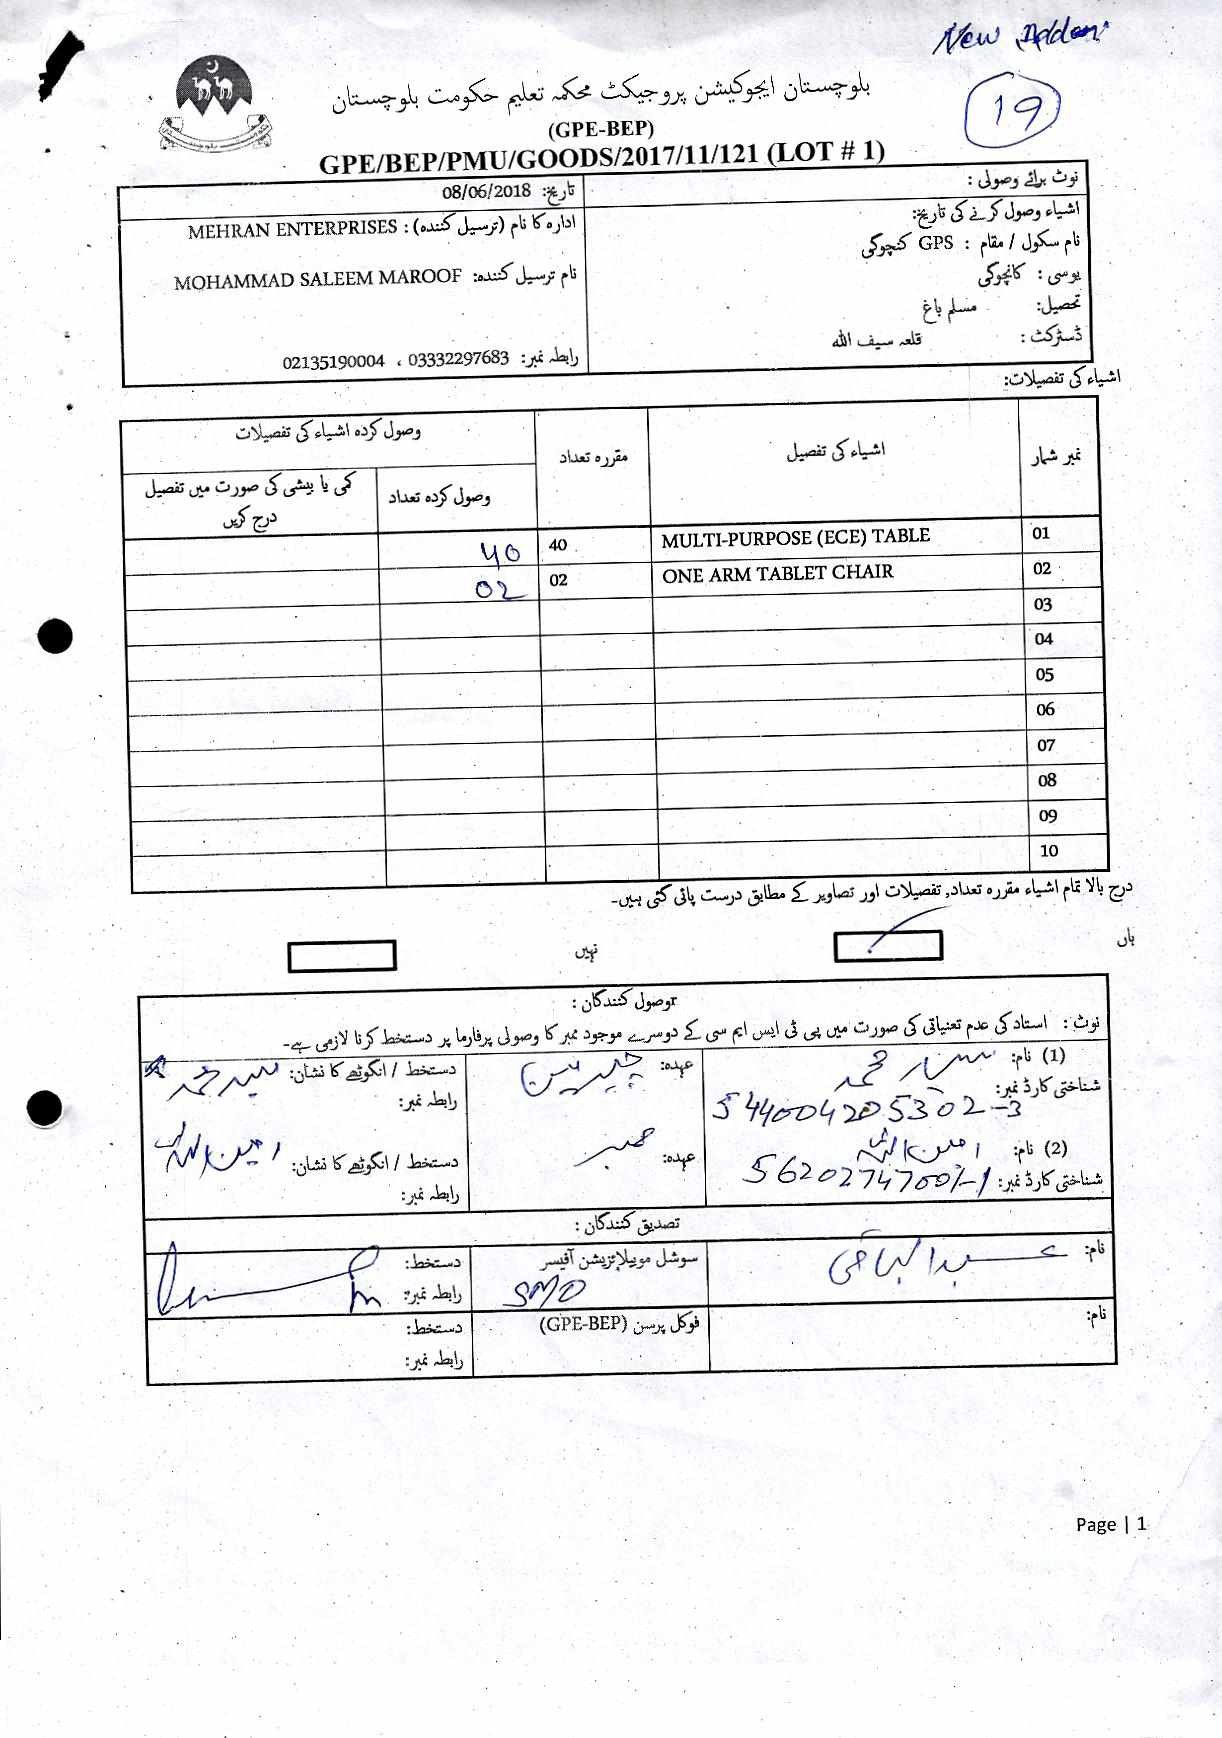 New
19
بلوچستان ایجوکیشن پروجیکٹ محکمہ تعلیم حکومت بلوچستان
(GPE-BEP)
GPE/BEP/PMU/GOODS/2017/11/121 (LOT # 1)
نوٹ برائے وصولی :
تاریخ: 08/06/2018
اشیاء وصول کرنے کی تاریخ:
ادارہ کا نام (ترسیل کنندہ) : MEHRAN ENTERPRISES
نام سکول / مقام : GPS کنچوگی
یوسی : کانچوگی
نام ترسیل کنندہ: MOHAMMAD SALEEM MAROOF
تحصیل: مسلم باغ
ڈسٹرکٹ : قلعہ سیف اللہ
رابطہ نمبر: 03332297683 ، 02135190004
اشیاء کی تفصیلات:
نمبر شمار اشیاء کی تفصیل مقررہ تعداد وصول کردہ اشیاء کی تفصیلات
وصول کردہ تعداد کمی یا بیشی کی صورت میں تفصیل
درج کریں
01 MULTI-PURPOSE (ECE) TABLE 40 40
02 ONE ARM TABLET CHAIR 02 02
03
04
05
06
07
08
09
10
درج بالا تمام اشیاء مقررہ تعداد, تفصیلات اور تصاویر کے مطابق درست پائی گئی ہیں۔
ہاں نہیں
rوصول کنندگان :
نوٹ : استاد کی عدم تعنیاتی کی صورت میں پی ٹی ایس ایم سی کے دوسرے موجود ممبر کا وصولی پرفارما پر دستخط کرنا لازمی ہے۔
(1) نام: عہدہ: چیرمین دستخط / انگوٹھے کا نشان:
شناختی کارڈ نمبر: 544004205302-3 رابطہ نمبر:
(2) نام: عہدہ: ممبر دستخط / انگوٹھے کا نشان:
شناختی کارڈ نمبر: رابطہ نمبر:
تصدیق کنندگان :
نام: عبدالباقی سوشل موبیلائزیشن آفیسر دستخط:
SMO رابطہ نمبر:
نام: فوکل پرسن (GPE-BEP) دستخط:
رابطہ نمبر:
Page | 1